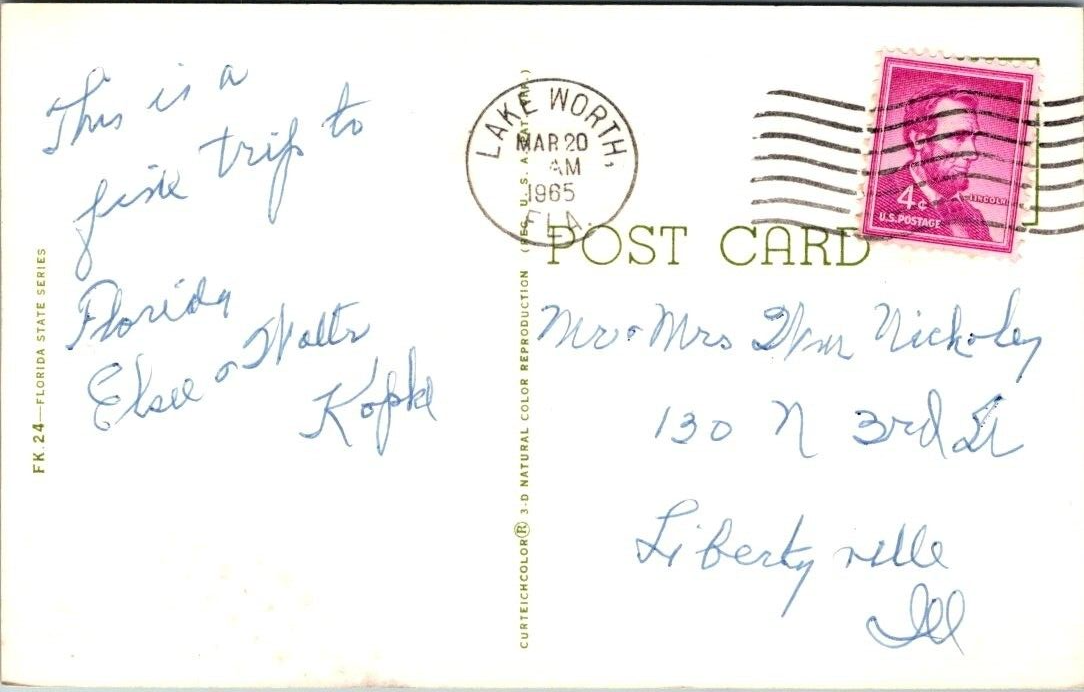 This is a
fine trip to
Florida
Elsee & Walter
Kopke
FK.24—FLORIDA STATE SERIES
CURTEICHCOLOR® 3-D NATURAL COLOR REPRODUCTION (REG. U.S.A. PAT. OFF.)
LAKE WORTH,
MAR 20
AM
1965
FLA.
4¢
LINCOLN
U.S. POSTAGE
POST CARD
Mr & Mrs Wm Nickoley
130 N 3rd St
Libertyville
Ill